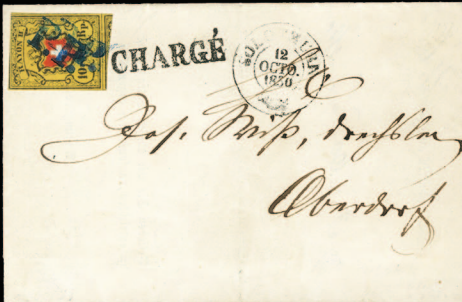 RAYON II
10 Rp.
CHARGÉ
SOLOTHURN
12
OCTO.
1850
Jos. Wiß, Drechsler
Oberdorf